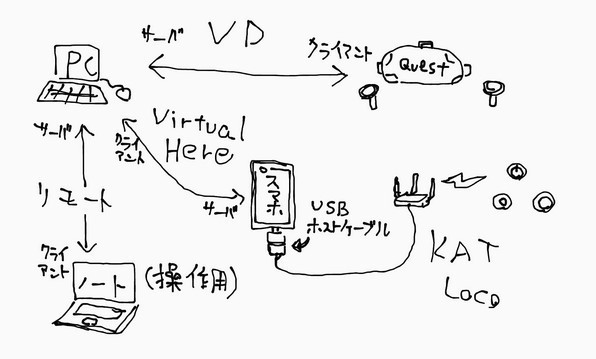 サーバ VD
クライアント
PC
Quest
サーバ
クライ
アント
Virtual
Here
リモート
サーバ
スマホ
USB
ホストケーブル
KAT
LOCO
クライ
アント
ノート
(操作用)